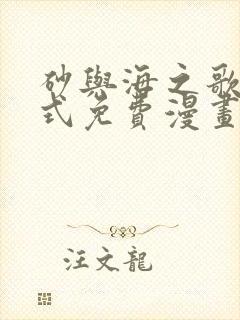 砂與海之歌
式免費漫畫
汪文龍